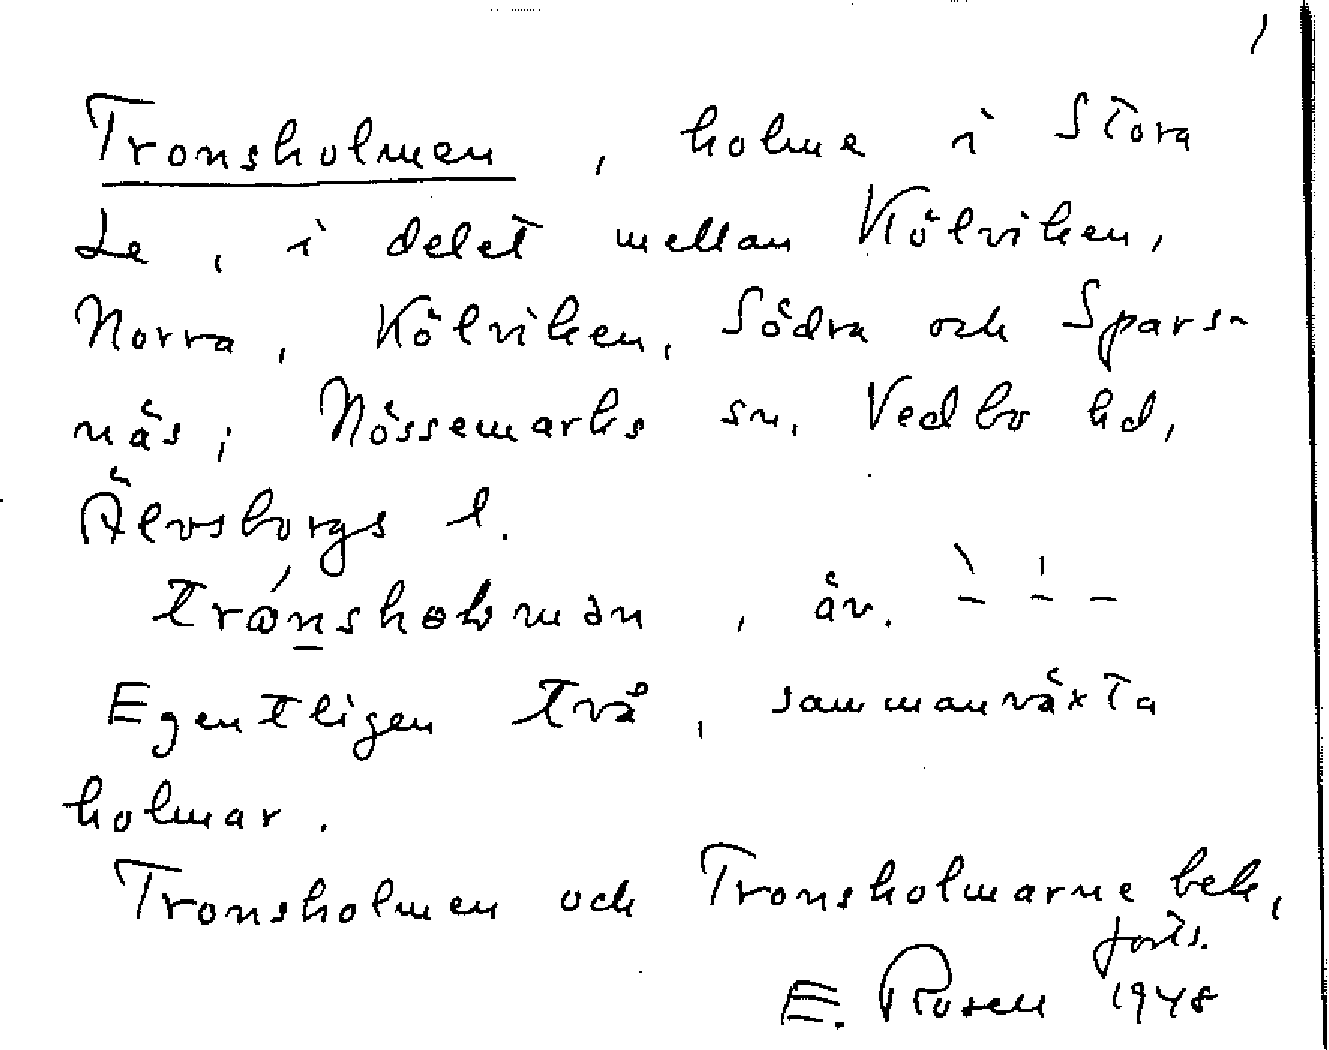 1
Tronsholmen, holme i Stora
Le, i delet mellan Kölviken,
Norra, Kölviken, Södra och Spars-
näs, Nössemarks sn, Vedbo hd,
Älvsborgs l.
, äv.
Egentligen två, sammanväxta
holmar.
Tronsholmen och Tronsholmarne bek,
forts.
E. Rosell 1948